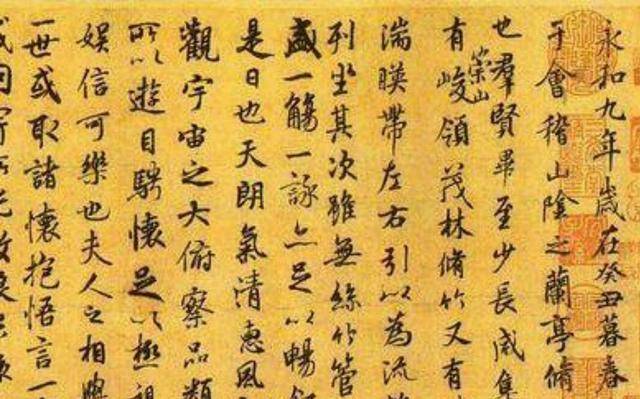 永和九年歲在癸丑暮春
于會稽山陰之蘭亭脩
也羣賢畢至少長咸集
有崇山峻領茂林脩竹又有
湍暎帶左右引以為流
列坐其次雖無絲竹管
盛一觴一詠亦足以暢
是日也天朗氣清惠風
觀宇宙之大俯察品類
所以遊目騁懷足以極
娛信可樂也夫人之相與
一世或取諸懷抱悟言一
或因寄所託放浪